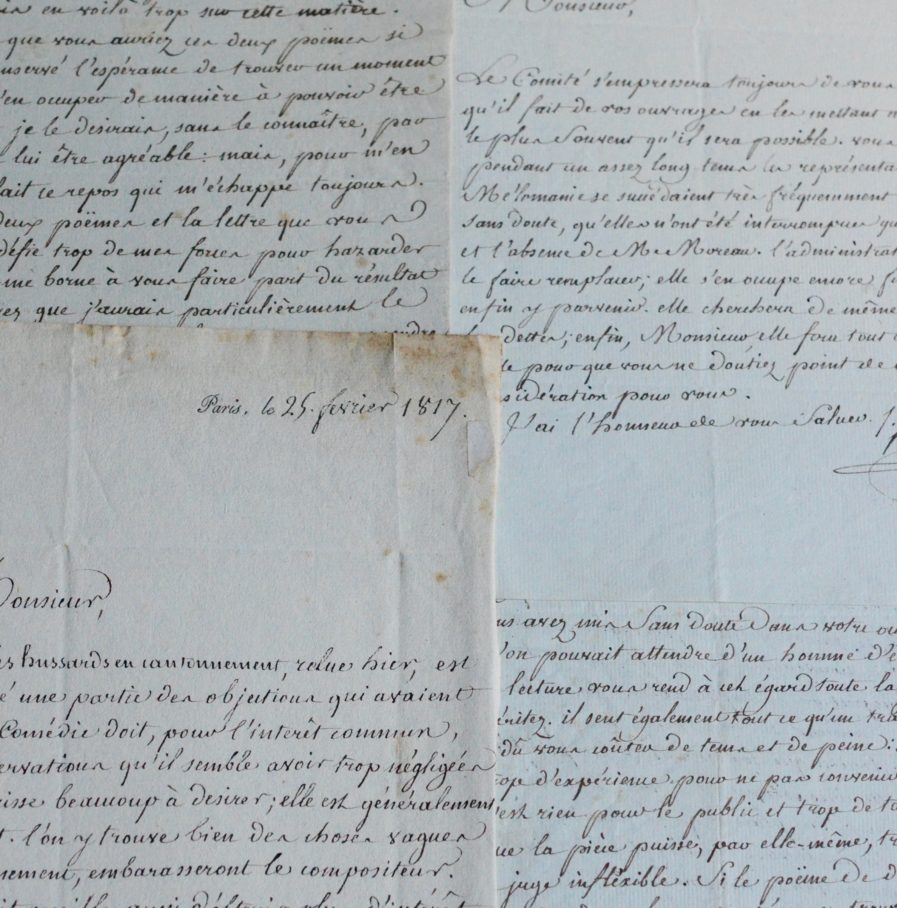 en voilà trop sur cette matière.
que vous auriez ces deux poëmes si
nservé l'espérance de trouver un moment
'en occuper de manière à pouvoir être
je le desirais, sans le connaître, par
lui être agréable: mais, pour m'en
fait ce repos qui m'échappe toujours.
deux poëmes et la lettre que vous
défie trop de mes forces pour hazarder
me borne à vous faire part du résultat
rez que j'aurais particulièrement le
Monsieur,
Le Comité s'empressera toujours de vous
qu'il fait de vos ouvrages en les mettant
le plus souvent qu'il sera possible. vous
pendant un assez long tems les représenta
Mélomanie se succédaient très fréquemment
sans doute, qu'elles n'ont été interrompues qu
et l'absence de M. Moreau. l'administrat
le faire remplacer; elle s'en occupe encore
enfin y parvenir. elle cherchera de même
dettes; enfin, Monsieur, elle fera tout
le pour que vous ne doutiez point de
sidération pour vous.
J'ai l'honneur de vous Saluer.
Paris, le 25. fevrier 1817.
Monsieur,
es hussards en cantonnement, relue hier, est
é une partie des objections qui avaient
Comédie doit, pour l'intérêt commun,
ervations qu'il semble avoir trop négligées
isse beaucoup à desirer; elle est généralement
t. l'on y trouve bien des choses vagues
nement, embarasseront le compositeur.
us avez mis Sans doute Dans votre ou
'on pouvait attendre d'un homme d'e
lecture vous rend à cet égard toute la
éritez. il sent également tout ce qu'un tra
dû vous coûter de tems et de peine:
trop d'expérience pour ne pas convenir
'est rien pour le public et trop de
ue la pièce puisse, par elle-même, tr
juge infléxible. Si le poëme de d